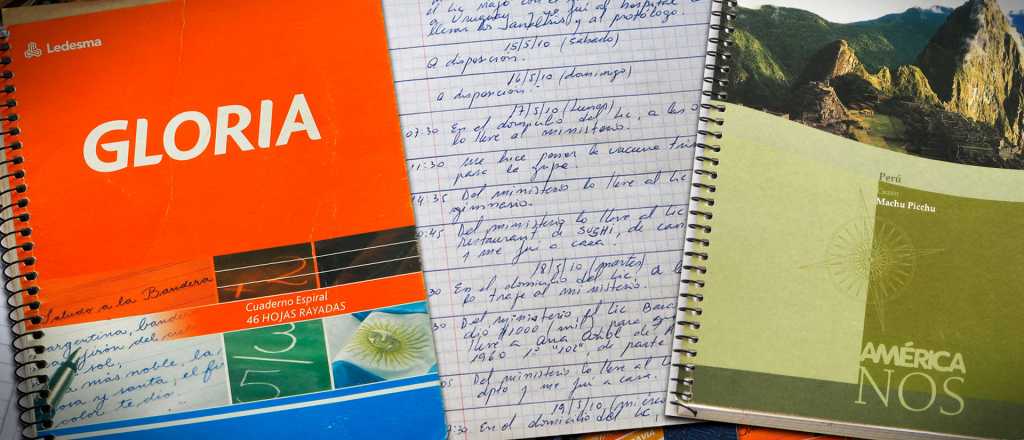 Ledesma
GLORIA
Saludo a la Bandera
argentina, bandera
jirón del
sol,
más noble, la
y santa, el
color te dio.
5/3
Cuaderno Espiral
46 HOJAS RAYADAS
Uruguay
y al
15/5/10 (sábado)
A disposición.
16/5/10 (domingo)
a disposición.
17/5/10 (Lunes)
07:30 En el domicilio del Lic, a las
lo llevé al ministerio.
11:30 me hice poner la vacuna
para la gripe.
14:35 Del ministerio lo llevé al Lic
gimnasio.
Del ministerio lo llevé al Lic
restaurant de SUSHI, de
y me fui a casa.
18/5/10 (martes)
En el domicilio del Lic, a
lo traje al ministerio.
Del ministerio, el Lic
dió $1000 (mil) para
a Ana
1960 1º "101", de parte
Del ministerio lo llevé al Lic
dpto y me fui a casa.
19/5/10
En el domicilio del Lic
Perú
Cuzco
Machu Picchu
AMÉRICA
NOS